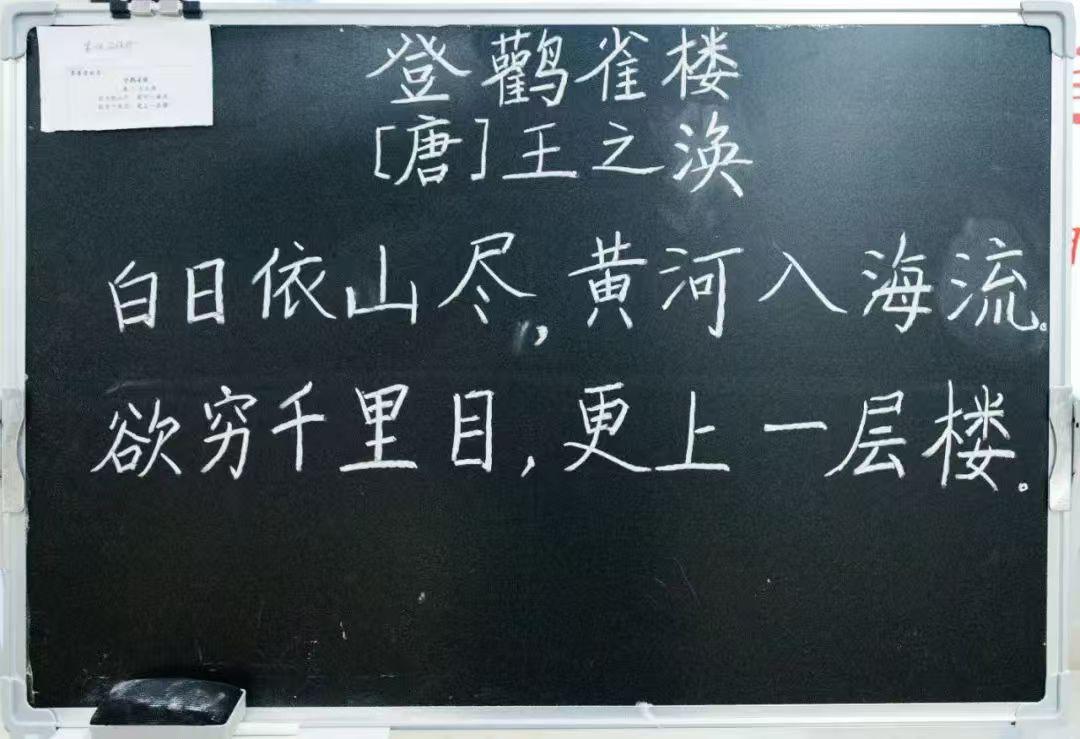 登鹳雀楼
[唐]王之涣
白日依山尽,黄河入海流。
欲穷千里目,更上一层楼。